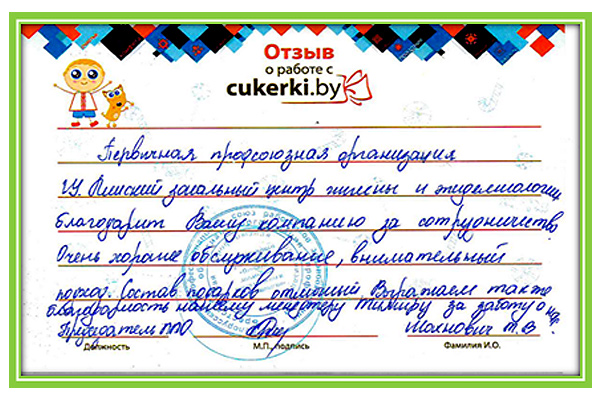 Отзыв
о работе с
cukerki.by
Первичная профсоюзная организация
ГУ "Минский зональный центр гигиены и эпидемиологии
благодарит Вашу компанию за сотрудничество.
Очень хорошее обслуживание, внимательный
подход. Состав подарков отличный. Выражаем также
благодарность нашему менеджеру Тимуру за заботу о нас.
Председатель ППО Махнович Т.В.
Должность М.П., подпись Фамилия И.О.